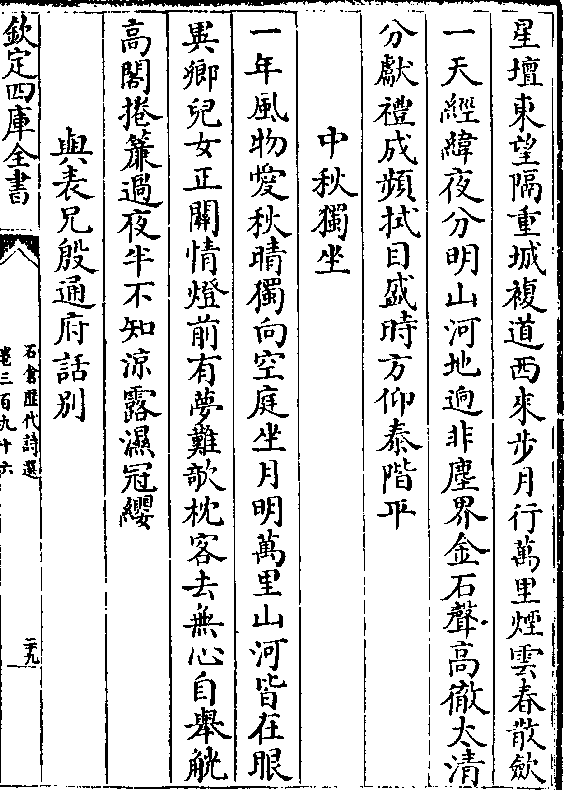 星壇東望隔重城複道西來步月行萬里煙雲春散歛
一天經緯夜分明山河地逈非塵界金石聲高徹太清
分獻禮成頻拭目盛時方仰泰階平
中秋獨坐
一年風物愛秋晴獨向空庭坐月明萬里山河皆在眼
異鄉兒女正關情燈前有夢難欹枕客去無心自舉觥
高閣捲簾過夜半不知涼露濕冠纓
與表兄殷通府話别
欽定四庫全書
石倉歷代詩選
卷三百九十六
二九